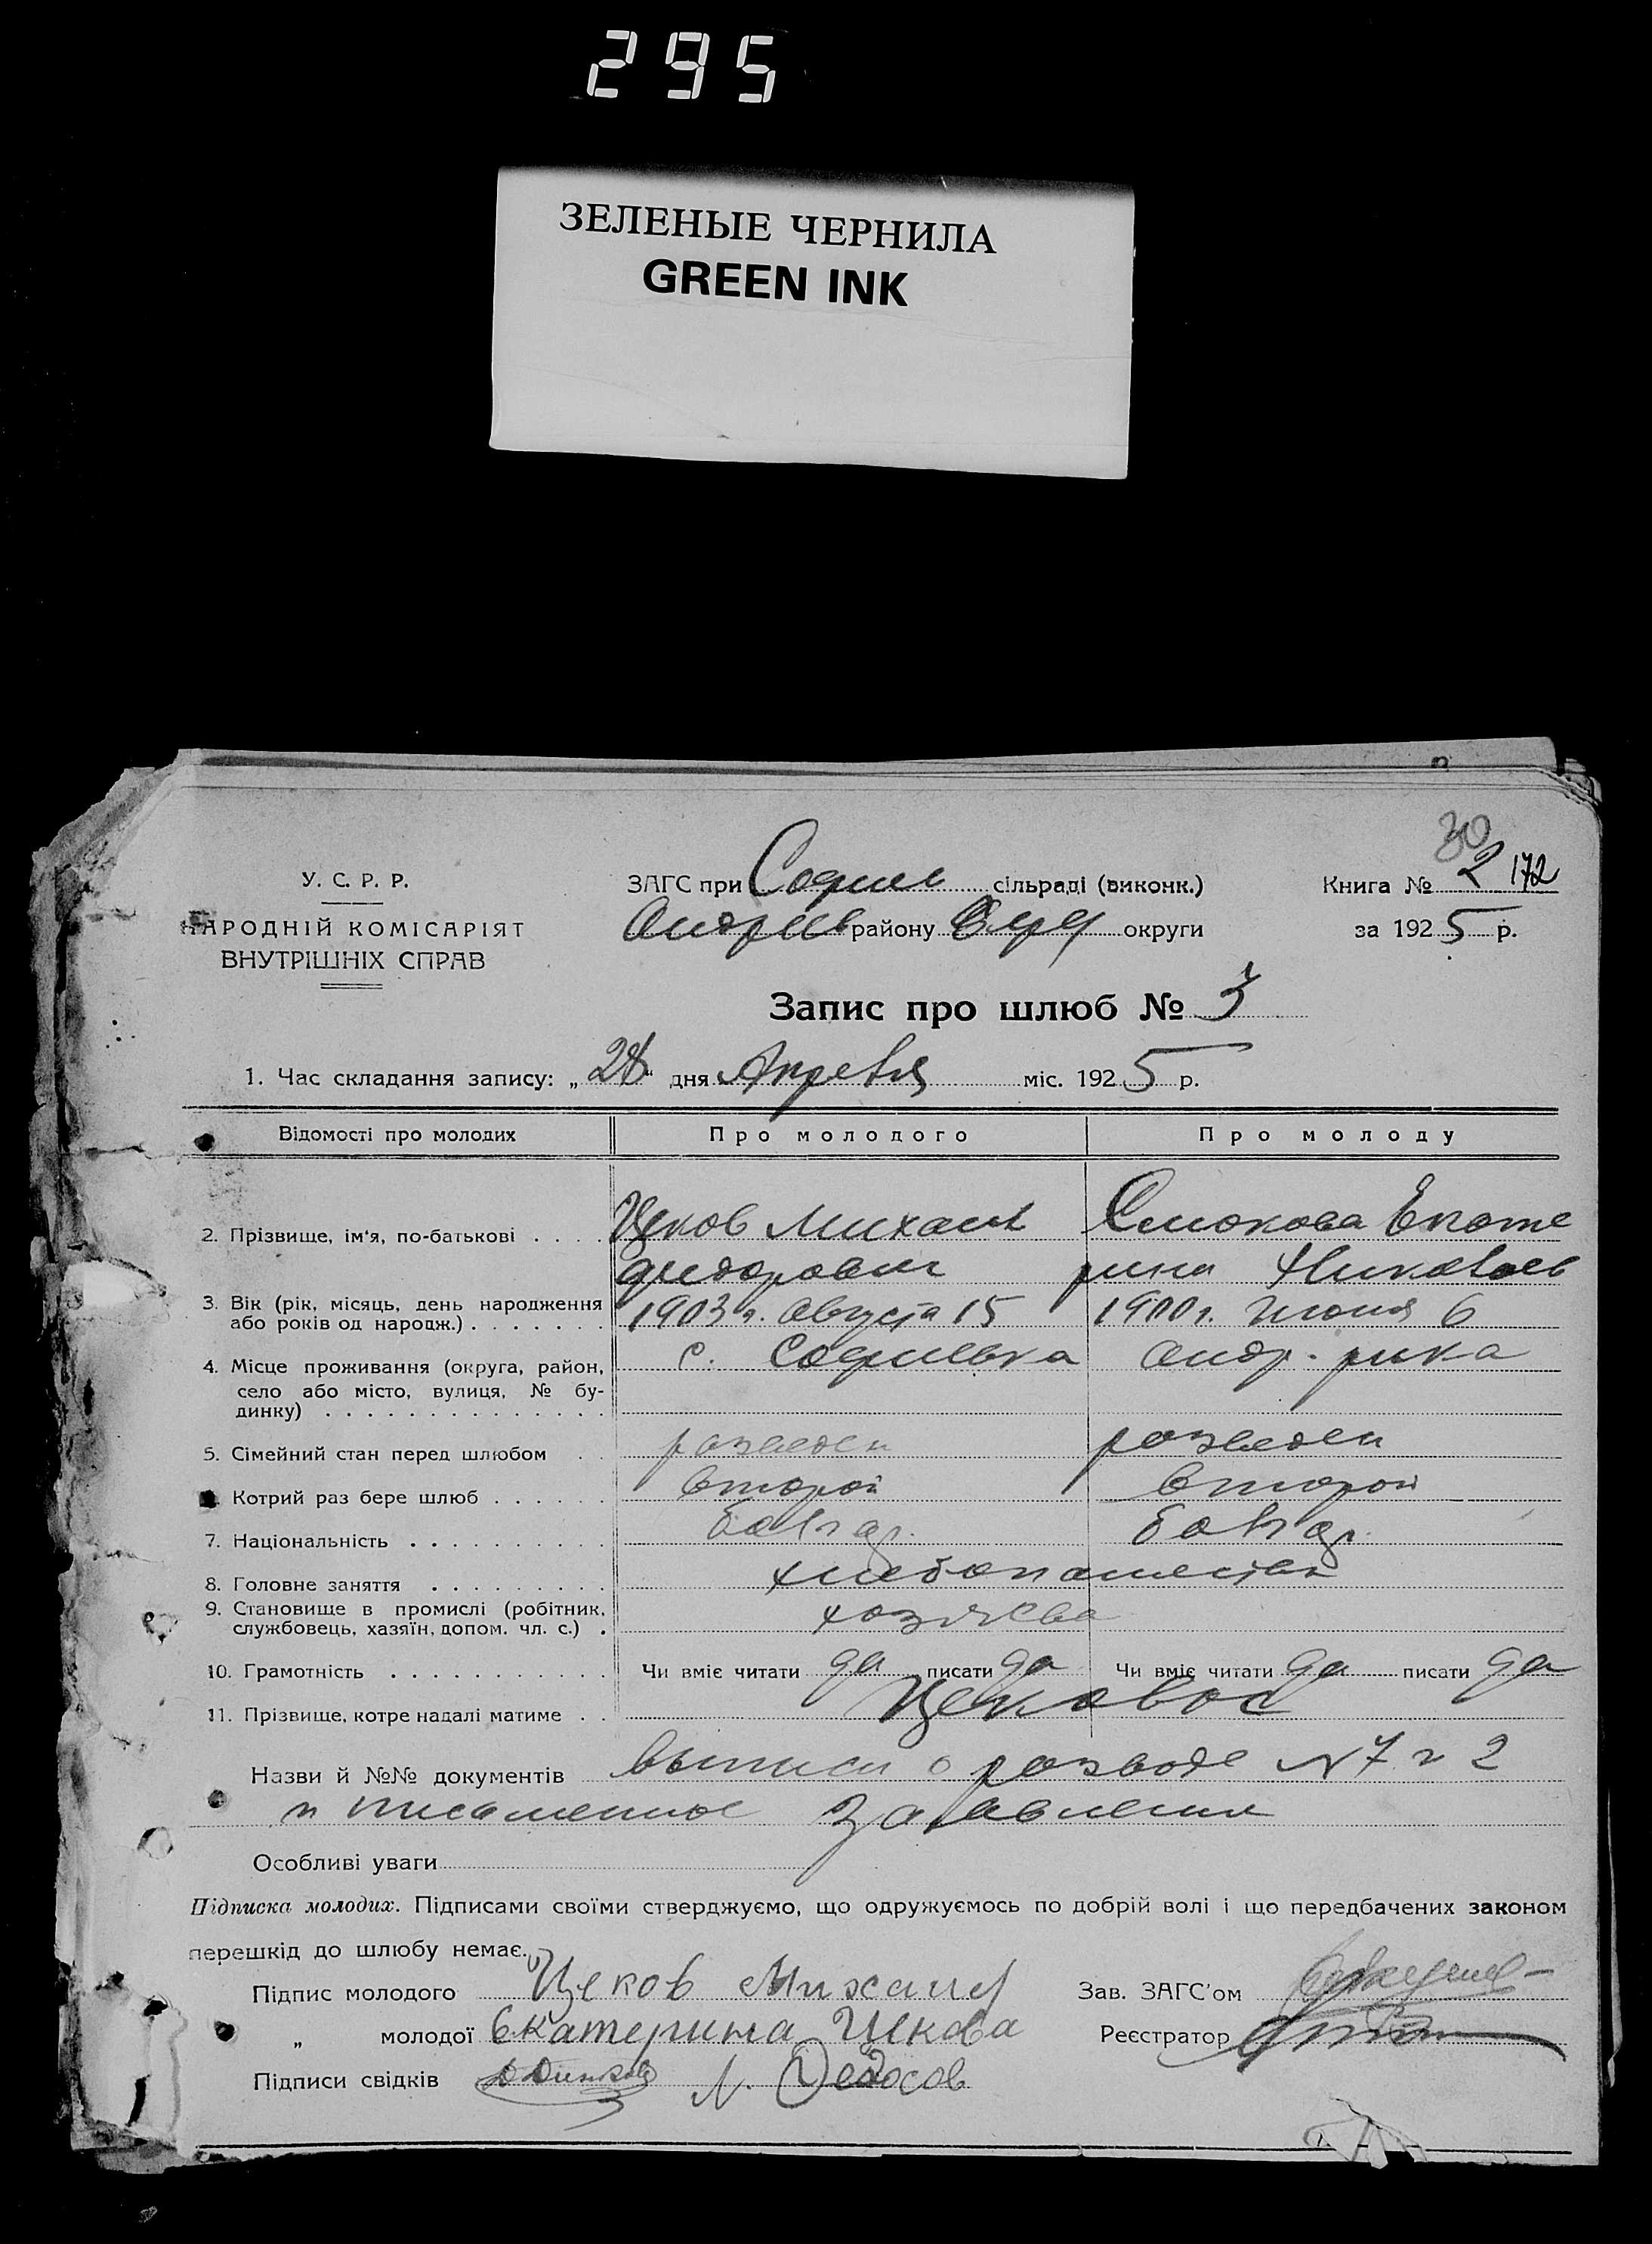 295
ЗЕЛЕНЫЕ ЧЕРНИЛА
GREEN INK
30
У. С. Р. Р.
ЗАГС при Софие сільраді (виконк.)
Книга № 2 172
НАРОДНІЙ КОМІСАРІЯТ
Андреев району округи
за 1925 р.
ВНУТРІШНІХ СПРАВ
Запис про шлюб № 3
1. Час складання запису: „28“ дня Апреля міс. 1925 р.
Відомості про молодих Про молодого Про молоду
2. Прізвище, ім'я, по-батькові . . . . Цеков Михаил Екате
Федорович рина Николаев
3. Вік (рік, місяць, день народження
або років од народж.) . . . . . . . 1903 г. Августа 15 1900 г. Июня 6
4. Місце проживання (округа, район, с. Софиевка Андр.-
село або місто, вулиця, № бу-
динку) . . . . . . . . . . . . . .
5. Сімейний стан перед шлюбом . . розведен розведен
Котрий раз бере шлюб . . . . . . второй второй
7. Національність . . . . . . . . . . болгар. болгар.
8. Головне заняття . . . . . . . . . хлебопашество
9. Становище в промислі (робітник,
службовець, хазяїн, допом. чл. с.) .
10. Грамотність . . . . . . . . . . . Чи вміє читати да писати да Чи вміє читати да писати да
11. Прізвище, котре надалі матиме . . Цековы
Назви й №№ документів выписи о розводе № 7 и 2
и письменное заявления
Особливі уваги
Підписка молодих. Підписами своїми стверджуємо, що одружуємось по добрій волі і що передбачених законом
перешкід до шлюбу немає.
Підпис молодого Цеков Михаил Зав. ЗАГС'ом
„ молодої Екатерина Цекова Реєстратор
Підписи свідків